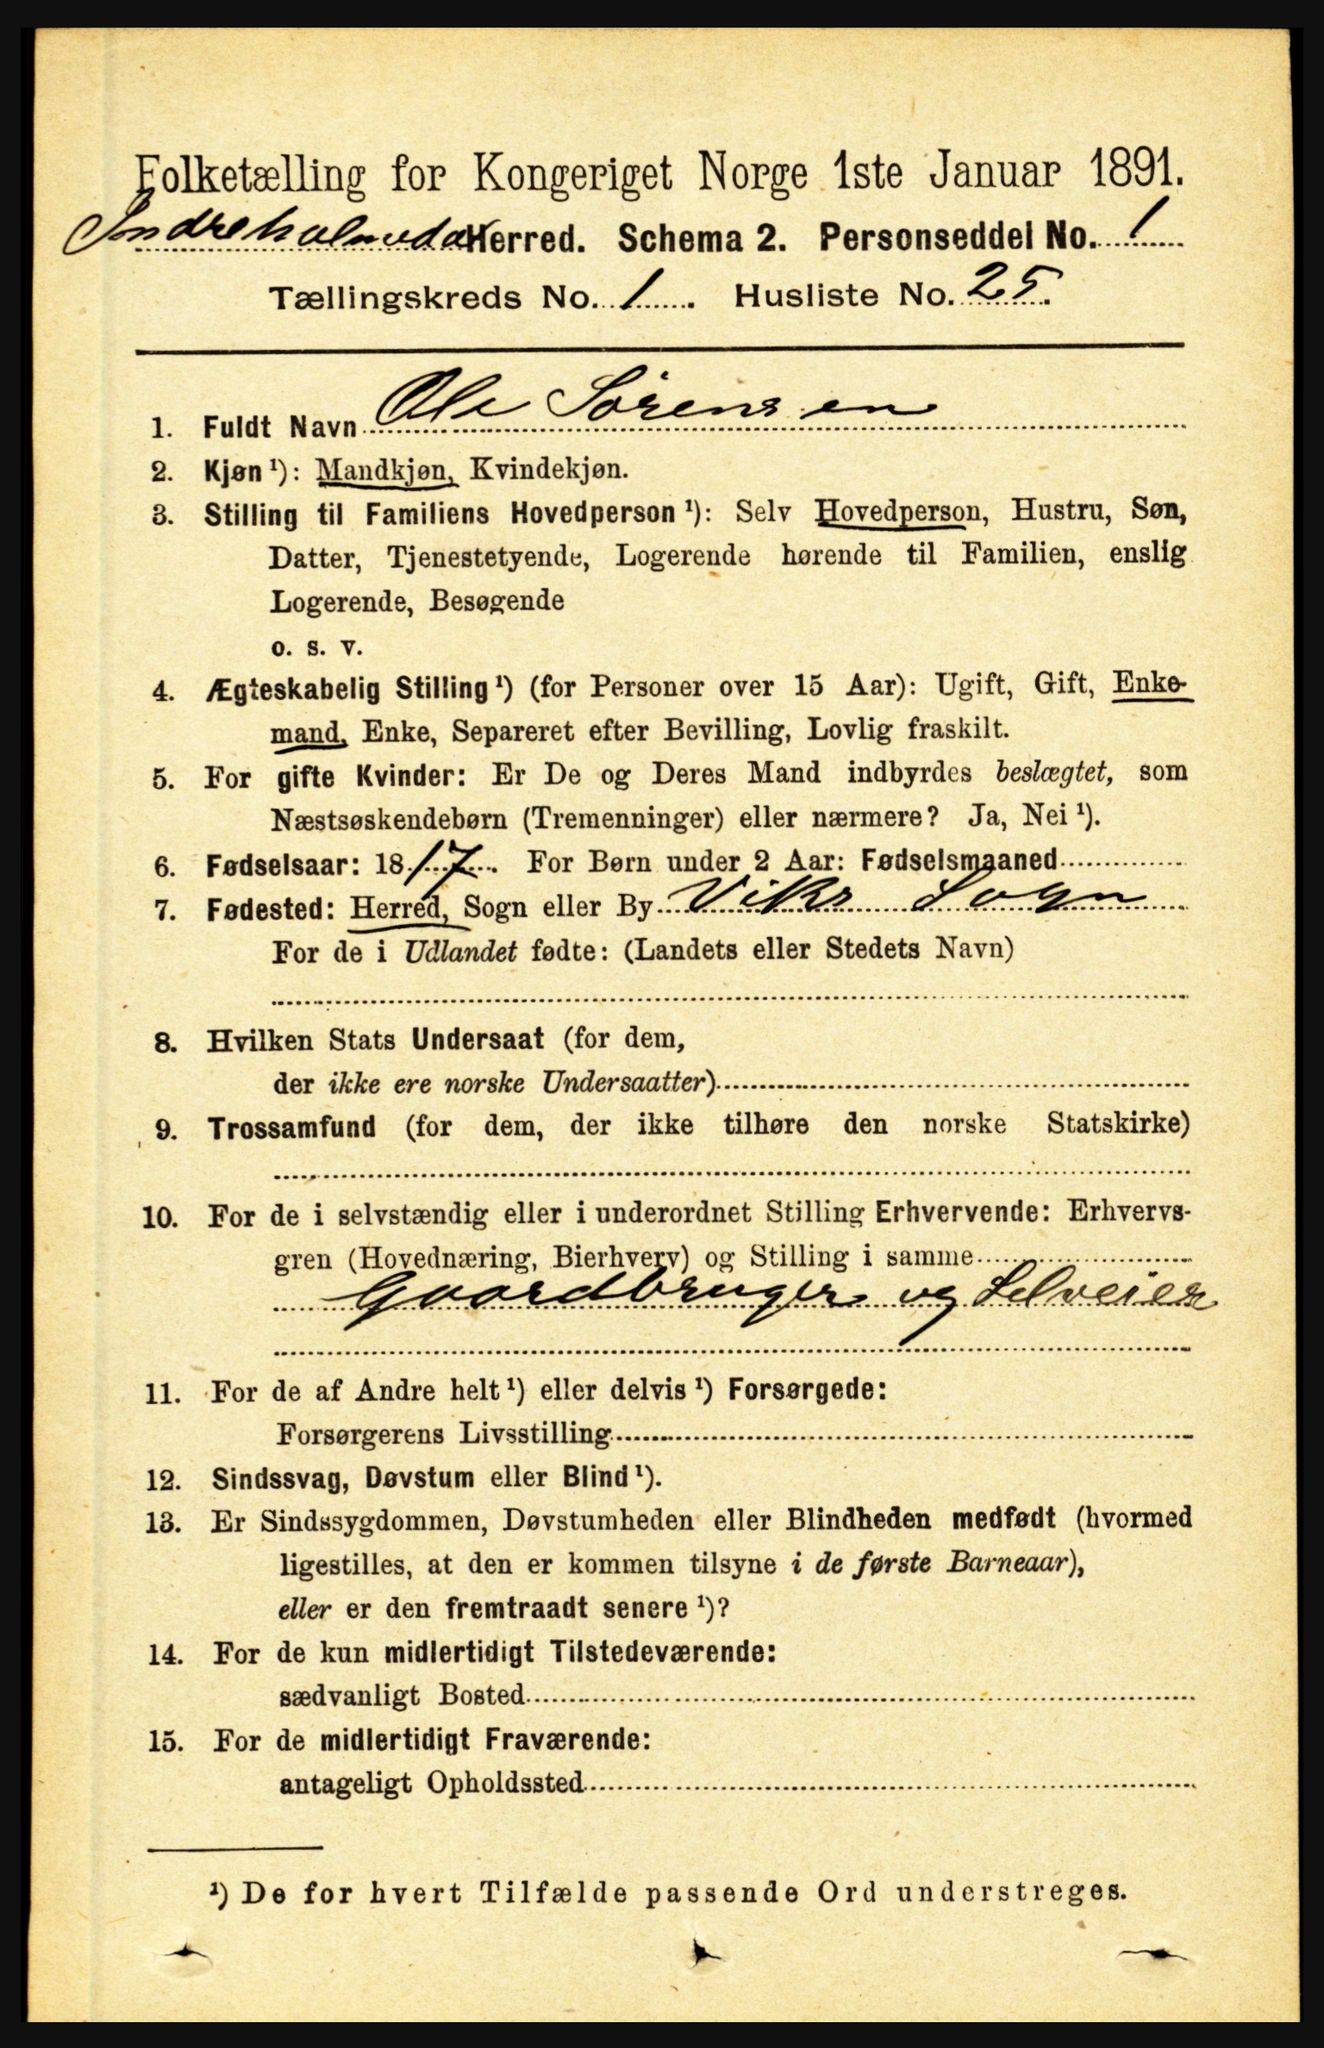 Folketælling for Kongeriget Norge 1ste Januar 1891.
Indreholmedal Herred. Schema 2. Personseddel No. 1
Tællingskreds No. 1. Husliste No. 25.
1. Fuldt Navn Ole Sörensen
2. Kjøn ¹): Mandkjøn, Kvindekjøn.
3. Stilling til Familiens Hovedperson ¹): Selv Hovedperson, Hustru, Søn,
Datter, Tjenestetyende, Logerende hørende til Familien, enslig
Logerende, Besøgende
o. s. v.
4. Ægteskabelig Stilling ¹) (for Personer over 15 Aar): Ugift, Gift, Enke-
mand, Enke, Separeret efter Bevilling, Lovlig fraskilt.
5. For gifte Kvinder: Er De og Deres Mand indbyrdes beslægtet, som
Næstsøskendebørn (Tremenninger) eller nærmere? Ja, Nei ¹).
6. Fødselsaar: 1817. For Børn under 2 Aar: Fødselsmaaned
7. Fødested: Herred, Sogn eller By Viks Sogn
For de i Udlandet fødte: (Landets eller Stedets Navn)
8. Hvilken Stats Undersaat (for dem,
der ikke ere norske Undersaatter)
9. Trossamfund (for dem, der ikke tilhøre den norske Statskirke)
10. For de i selvstændig eller i underordnet Stilling Erhvervende: Erhvervs-
gren (Hovednæring, Bierhverv) og Stilling i samme
Gaardbruger og Selveier
11. For de af Andre helt ¹) eller delvis ¹) Forsørgede:
Forsørgerens Livsstilling
12. Sindssvag, Døvstum eller Blind ¹).
13. Er Sindssygdommen, Døvstumheden eller Blindheden medfødt (hvormed
ligestilles, at den er kommen tilsyne i de første Barneaar),
eller er den fremtraadt senere ¹)?
14. For de kun midlertidigt Tilstedeværende:
sædvanligt Bosted
15. For de midlertidigt Fraværende:
antageligt Opholdssted
¹) De for hvert Tilfælde passende Ord understreges.